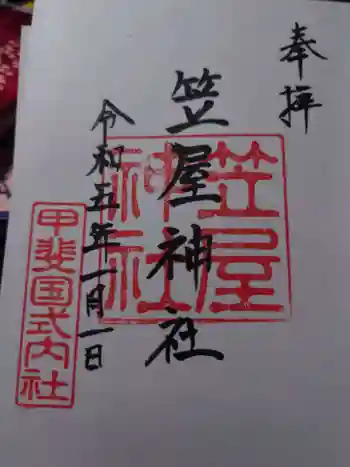 奉拝
笠屋神社
令和五年一月一日
笠屋
神社
甲斐国式内社